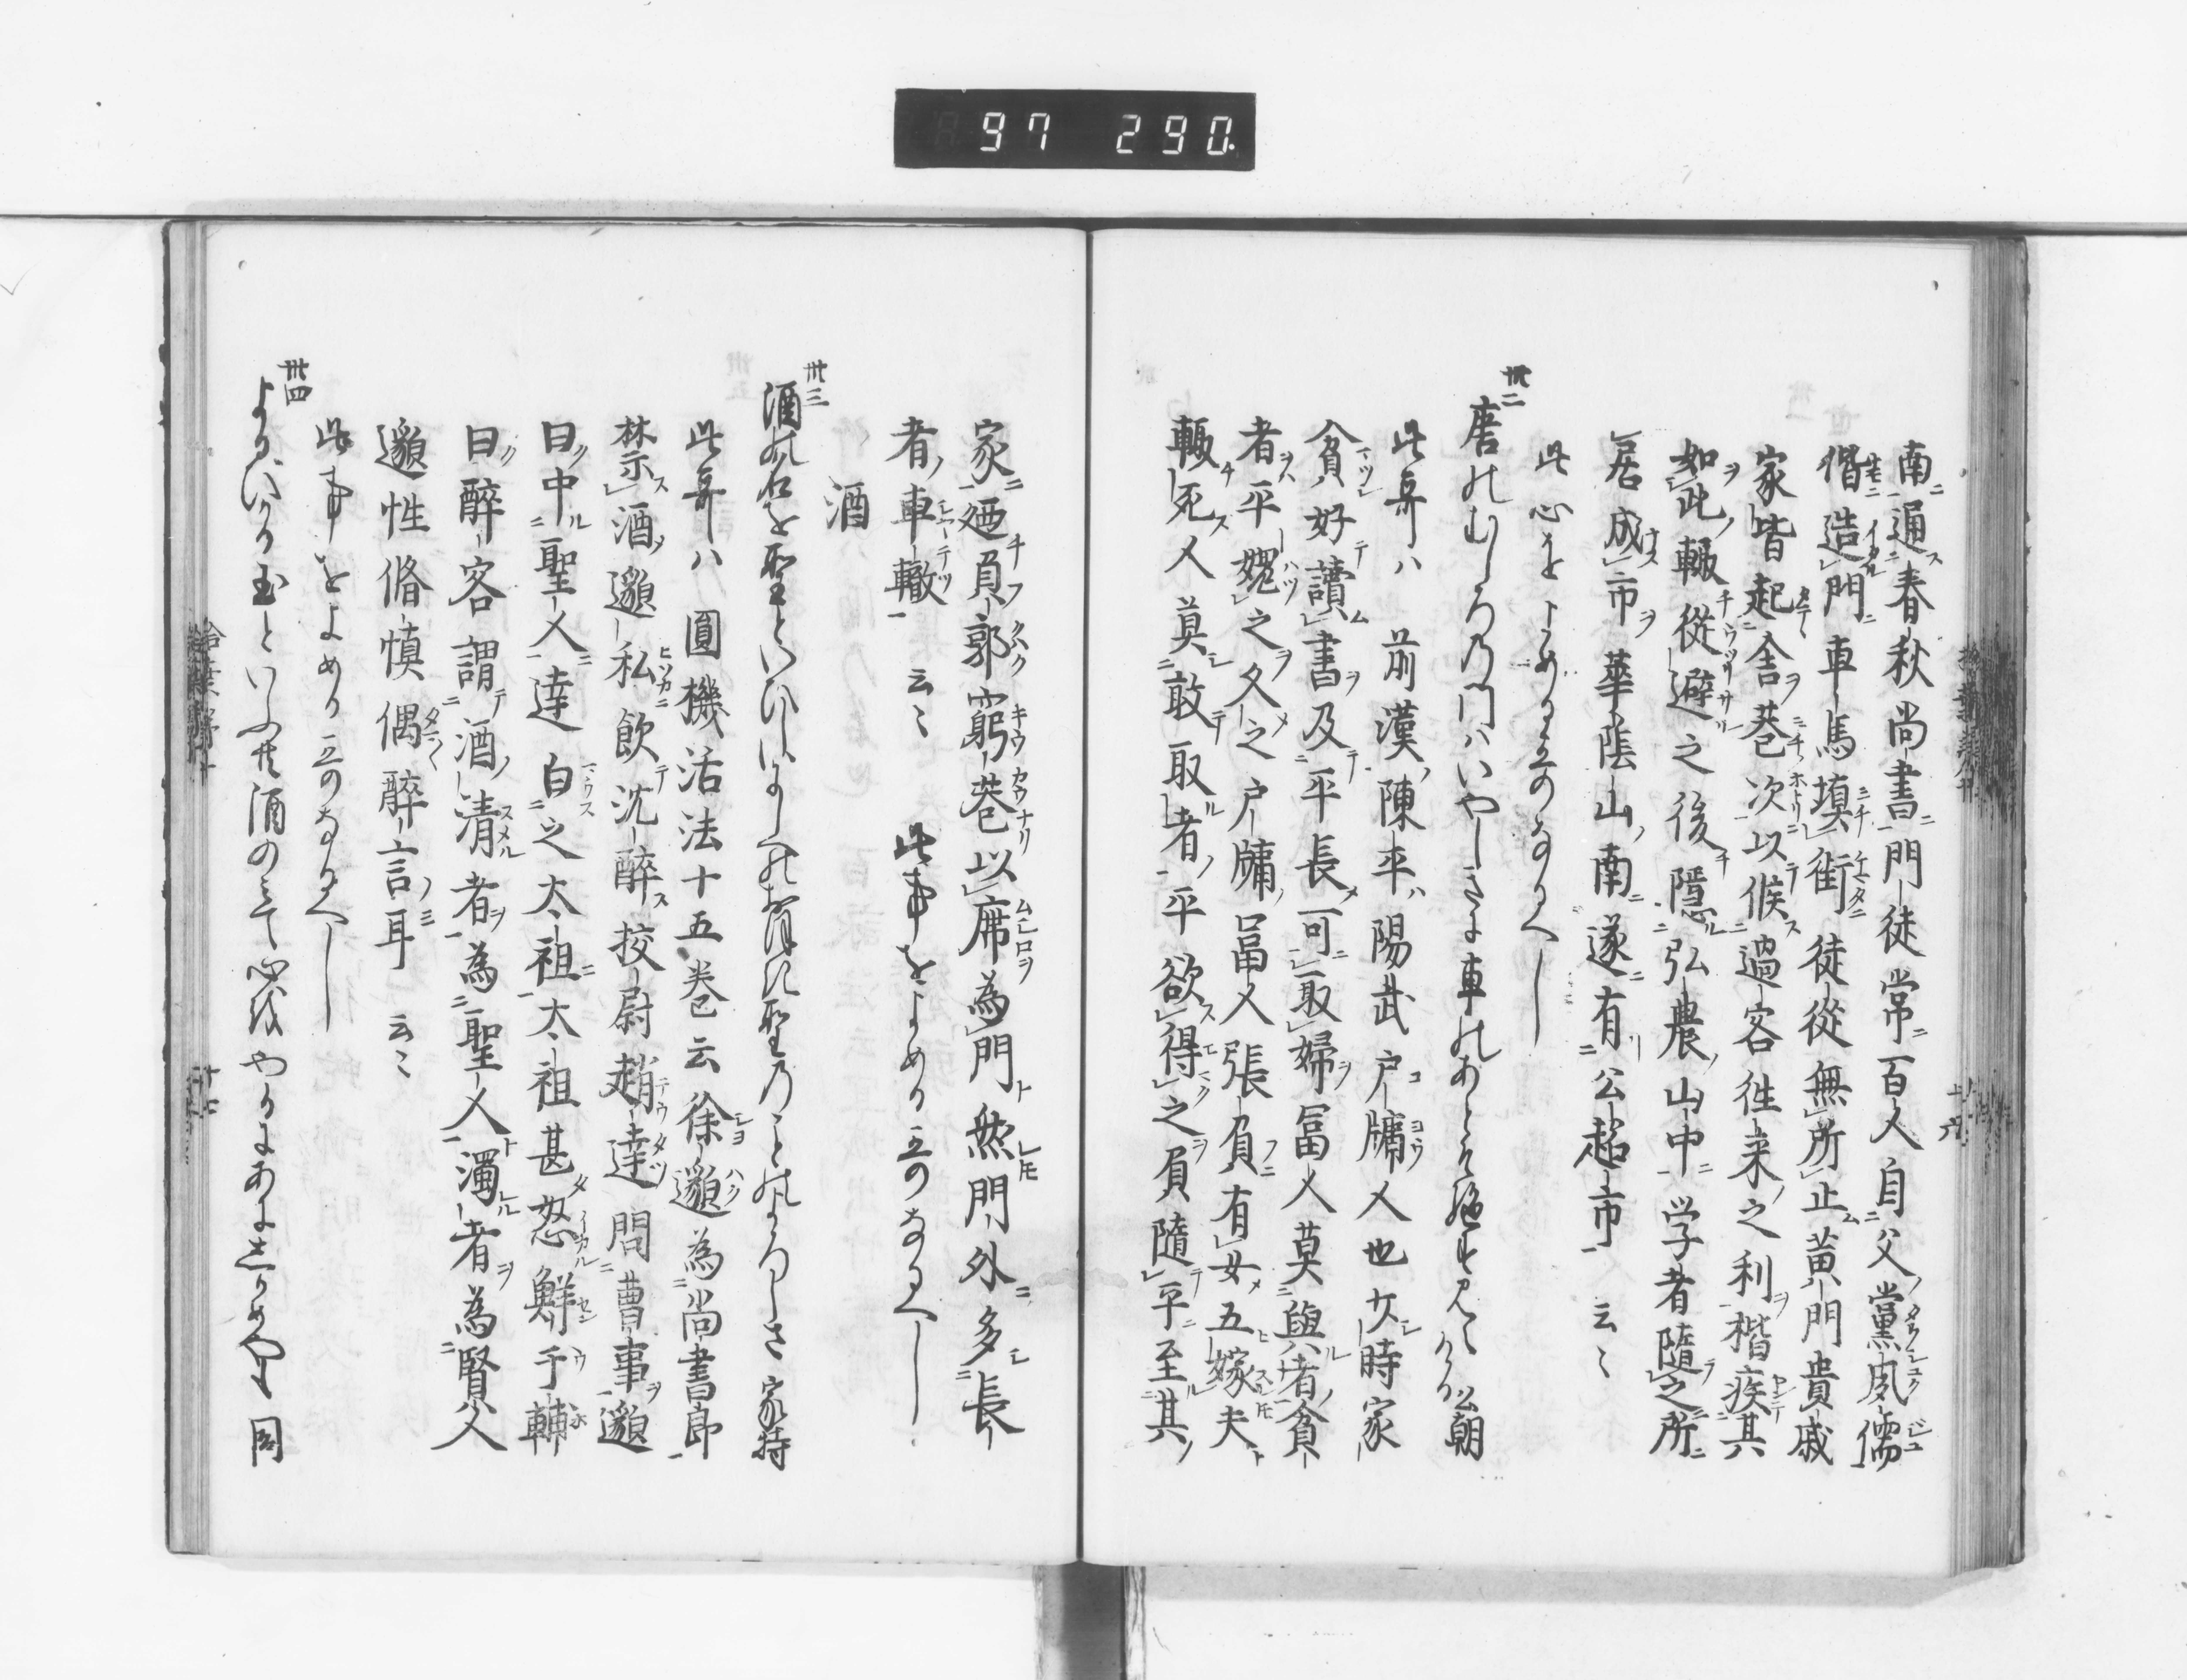 97 290
南通春秋尚書門徒常百人自父黨夙儒
偕造門車馬塡街徒從無所止黄門貴戚
家皆起舎巷次以候過客往来之利楷疾其
如此輙徙避之後隠弘農山中学者随之所
居成市華陰山南遂有公超市云〻
此心をよめる立のなるへし
卅二
唐のむしろの門はいやしきに車のあと
公朝
此哥ハ前漢陳平ハ陽武戸牖人也少時家
貧好讀書及平長可取婦冨人莫與者貧
者平媿之久之戸牖冨人張負有女五嫁夫
輙死人莫敢取者平欲得之負随平至其
家廼負郭窮巷以席為門然門外多長
者車轍云〻此事をよめる立のなるへし
酒
卅三
酒の名を聖といひしいにしへの大きき聖のことのよろしさ 家持
此哥ハ圓機活法十五巻云徐邈為尚書郎
禁酒邈私飲沈酔挍尉趙達問曹事邈
曰中聖人達白之太祖太祖甚怒鮮于輔
曰酔客謂酒清者為聖人濁者為賢人
邈性脩慎偶酔言耳云〻
此事をよめる立のなるへし
卅四
よるひかる玉といふ共酒のみて心をやるにあに志かめやも 同